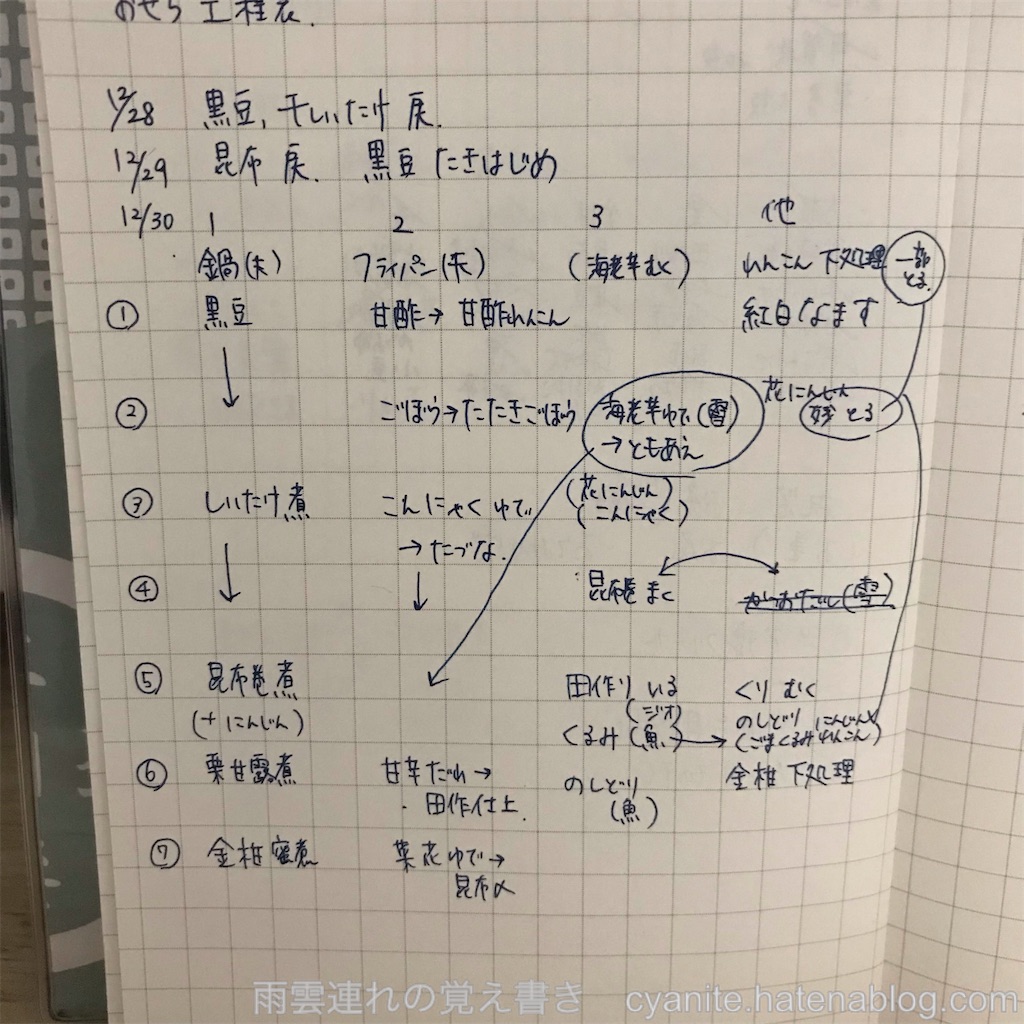 おせち 工程表.
12/28 黒豆, 干しいたけ 戻.
12/29 昆布 戻. 黒豆 たきはじめ
12/30 1 2 3 他
鍋(大) フライパン(大) (海老芋むく) れんこん 下処理 一部とる.
① 黒豆 甘酢→ 甘酢れんこん 紅白なます
花にんじん
② ごぼう→たたきごぼう 海老芋ゆで(雪) とる
→ともあえ
(花にんじん)
③ しいたけ煮 こんにゃく ゆで (こんにゃく)
→たづな.
④ 昆布巻 まく
⑤ 昆布巻煮 田作り いる くり むく
(ジオ)
(+ にんじん) くるみ(魚)→ のしどり にんじん
(ごまくるみれんこん)
⑥ 栗甘露煮 甘辛だれ→ のしどり 金柑 下処理
・田作仕上. (魚)
⑦ 金柑蜜煮 菜花ゆで→
昆布〆
雨雲連れの覚え書き cyanite.hatenablog.com